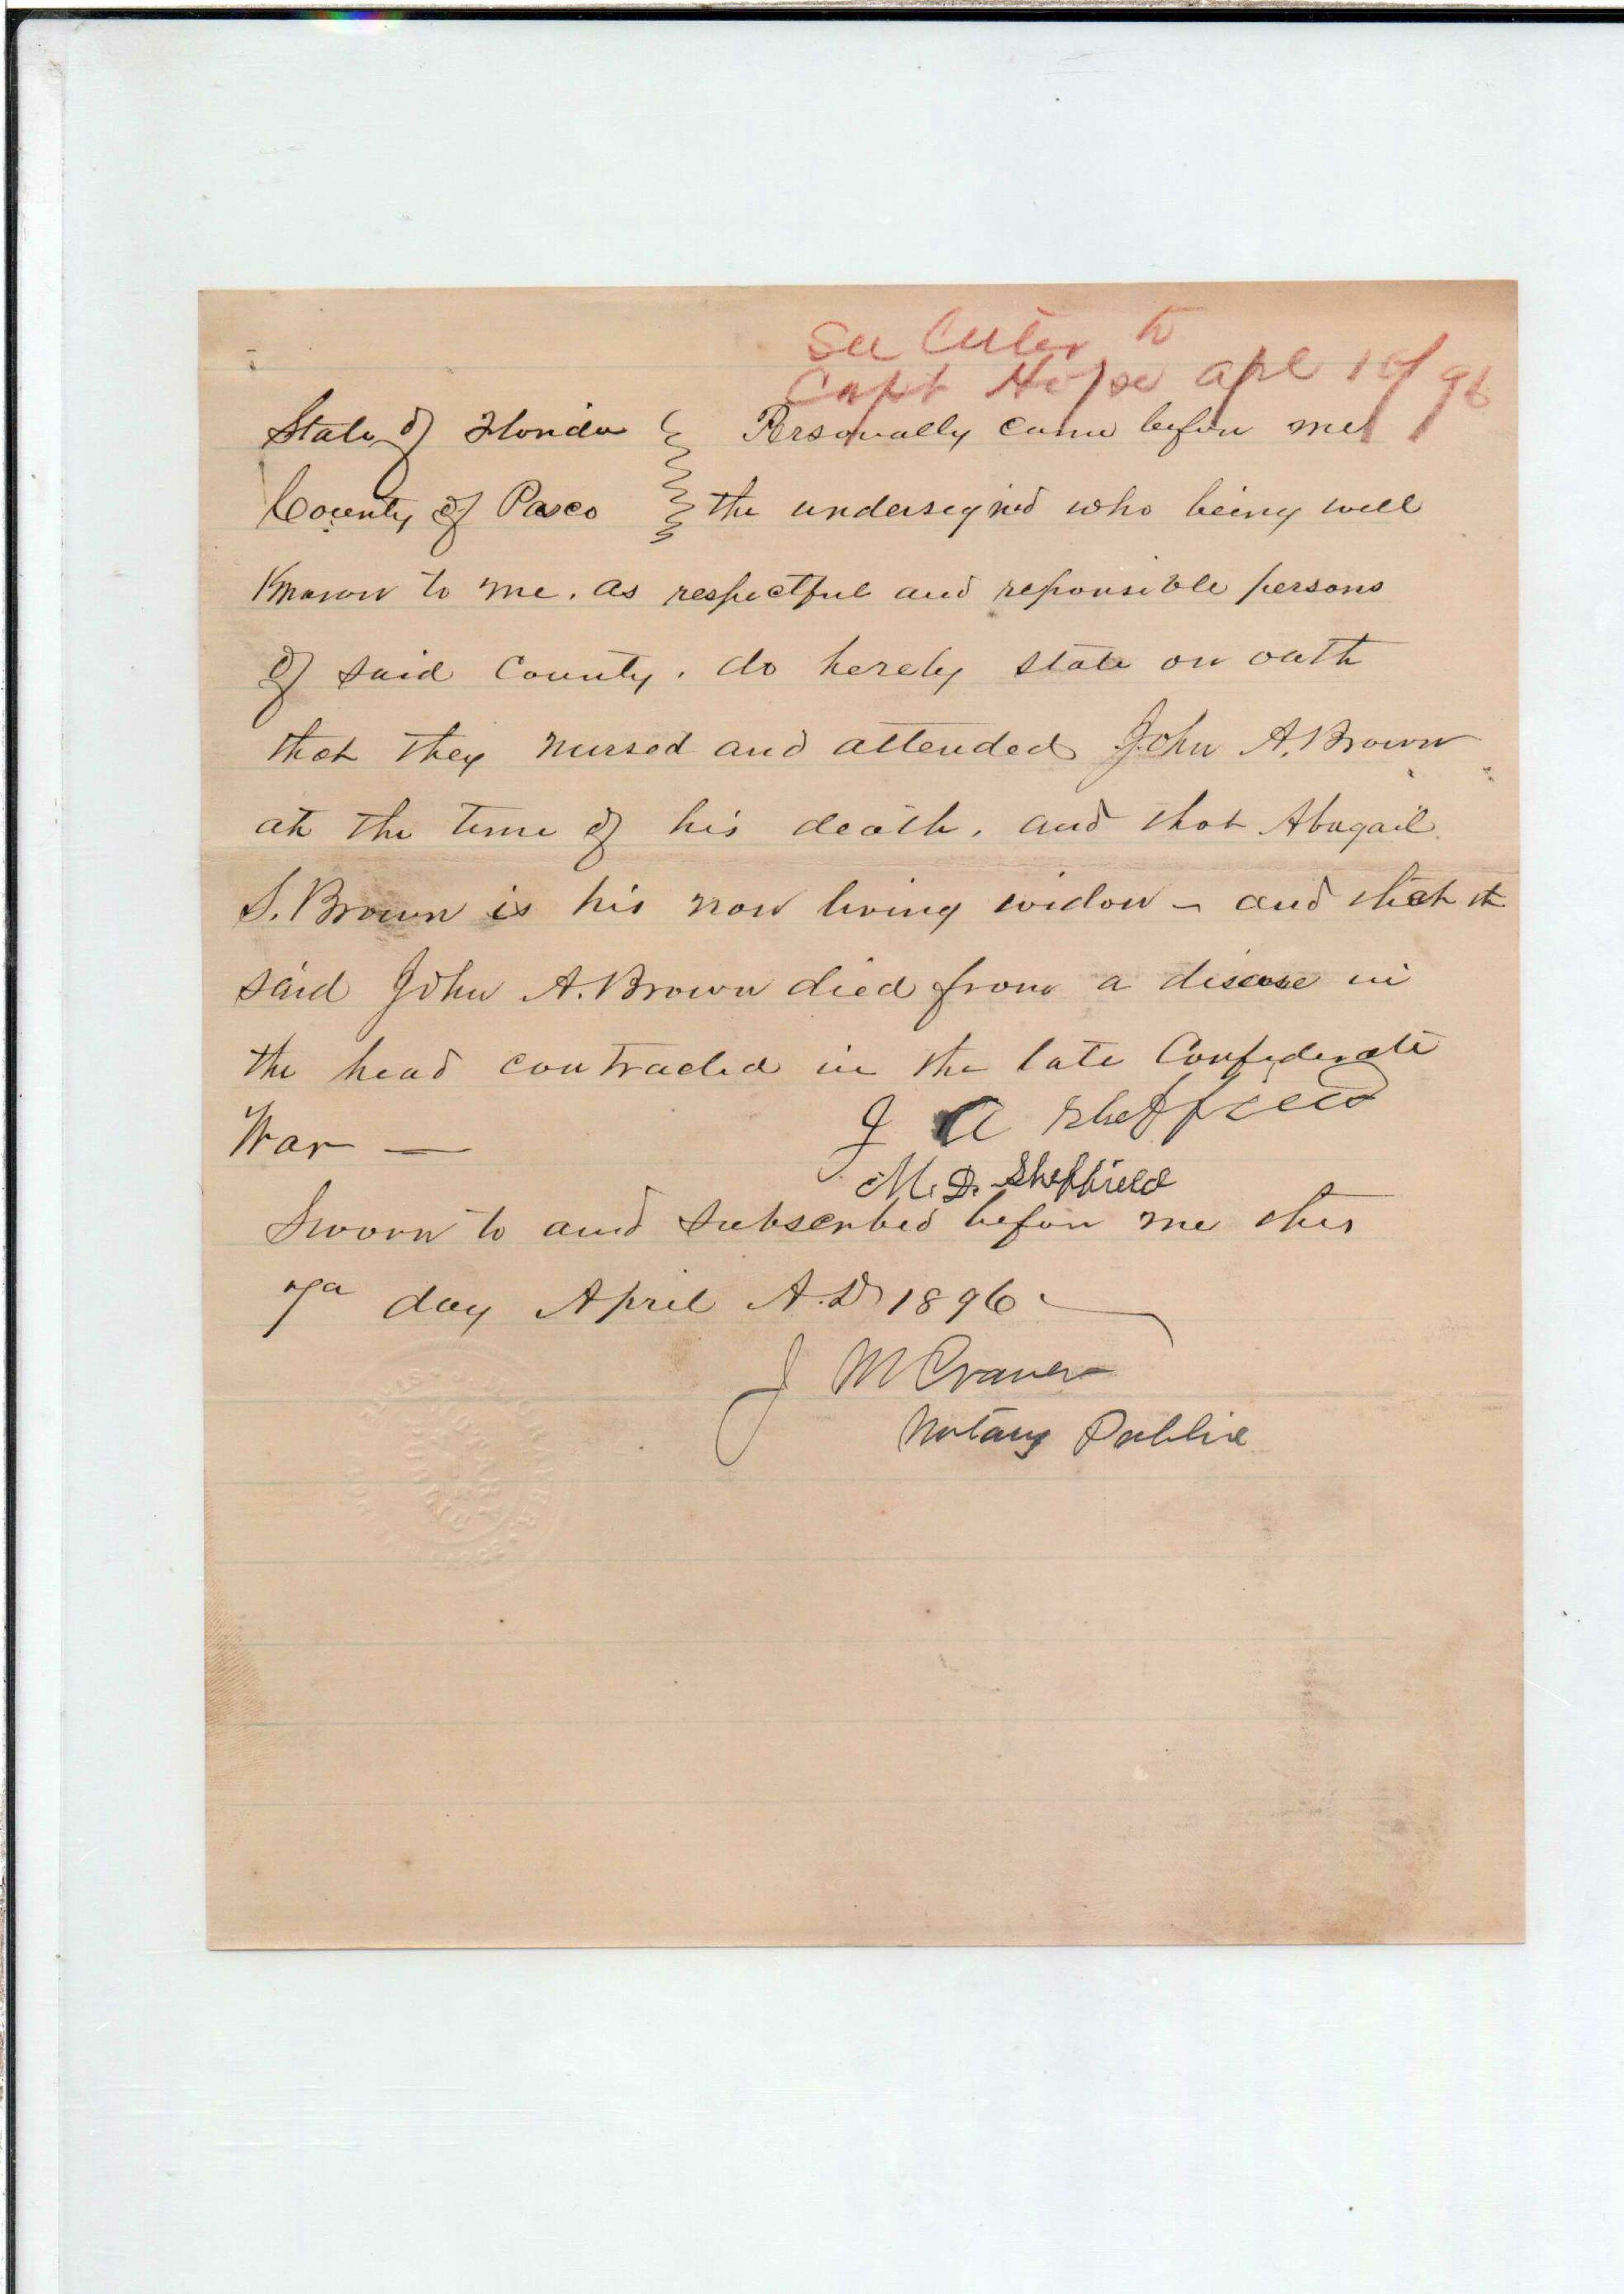 See letter to
Capt Hope apl 10/96
State of Florida Personally came before me
County of Pasco the undersigned who being well
Known to me. as respectful and reponsible persons
of said County. do hereby state on oath
that they nursed and attended John A. Brown
at the time of his death. and that Abagail
S. Brown is his now living widow - and that th
said John A. Brown died from a disease in
the head contracted in the late Confederate
War —
J A Sheffield
M. D. Sheffield
Sworn to and subscribed before me this
7th day April A.D 1896
J M Craver
Notary Public
NOTARY
PUBLIC